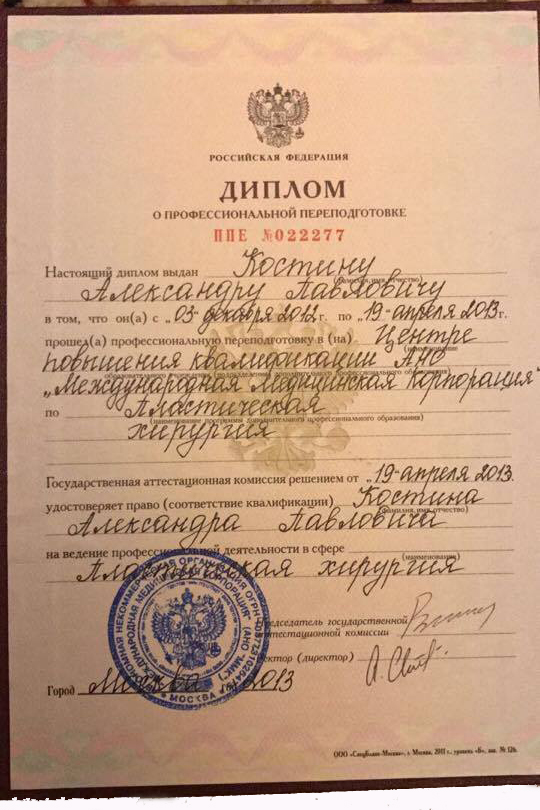 РОССИЙСКАЯ ФЕДЕРАЦИЯ
ДИПЛОМ
О ПРОФЕССИОНАЛЬНОЙ ПЕРЕПОДГОТОВКЕ
ППЕ №022277
Настоящий диплом выдан Костину
(фамилия, имя, отчество)
Александру Павловичу
в том, что он(а) с „03 декабря 2012 г. по „19 апреля 2013г.
прошел(а) профессиональную переподготовку в (на) Центре
(наименование
повышения квалификации АНО
дополнительного профессионального образования)
„Международная Медицинская Корпорация"
по Пластическая
(наименование программы дополнительного профессионального образования)
хирургия
Государственная аттестационная комиссия решением от „19 апреля 2013.
удостоверяет право (соответствие квалификации) Костина
(фамилия, имя, отчество)
Александра Павловича
на ведение профессиональной деятельности в сфере
(наименование)
Пластическая хирургия
Председатель государственной
аттестационной комиссии
Ректор (директор)
Город Москва 2013
МОСКВА
ООО «СпецБланк-Москва», г. Москва, 2011 г., уровень «Б», зак. № 126.